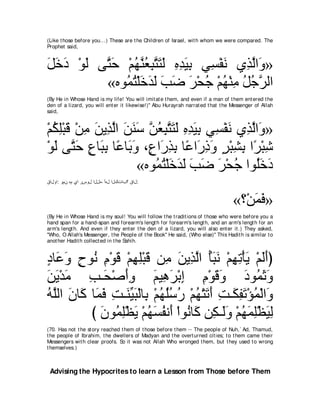 (Like those before you...) These are the Children of Israel, with whom we were compared. The Prophet said,
«وَالَّذِي نَفْسِي بِيَدِهِ لَتَتَّبِعُنَّهُمْ حَتَّى لَوْ دَخَلَ
الرَّجُلُ مِنْهُمْ جُحْرَ ضَبَ لَدَخَلْتُمُوه»
(By He in Whose Hand is my life! You will imitate them, and even if a man of them entered the den of a lizard, you will enter it likewise!)" Abu Hurayrah narrated that the Messenger of Allah said,
«وَالَّذِي نَفْسِي بِيَدِهِ لَتَتَّبِعُنَّ سَنَنَ الَّذِينَ مِنْ قَبْلِكُمْ
شِبْرًا بِشِبْرٍ وَذِرَاعًا بِذِرَاعٍ، وَبَاعًا بِبَاعٍ حَتَّى لَوْ
دَخَلُوا جُحْرَ ضَبَ لَدَخَلْتُمُوه»
«فَمَنْ؟»
(By He in Whose Hand is my soul! You will follow the traditions of those who were before you a hand span for a hand-span and forearm's length for forearm's length, and an arm's length for an arm's length. And even if they enter the den of a lizard, you will also enter it.) They asked, "Who, O Allah's Messenger, the People of the Book" He said, (Who else)" This Hadith is similar to another Hadith collected in the Sahih.
(أَلَمْ يَأْتِهِمْ نَبَأُ الَّذِينَ مِن قَبْلِهِمْ قَوْمِ نُوحٍ وَعَادٍ
وَثَمُودَ وَقَوْمِ إِبْرَهِيمَ وِأَصْحَـبِ مَدْيَنَ
وَالْمُؤْتَفِكَـتِ أَتَتْهُمْ رُسُلُهُمْ بِالْبَيِّنَـتِ فَمَا كَانَ اللَّهُ
لِيَظْلِمَهُمْ وَلَـكِن كَانُواْ أَنفُسَهُمْ يَظْلِمُونَ )
(70. Has not the story reached them of those before them -- The people of Nuh, `Ad, Thamud, the people of Ibrahim, the dwellers of Madyan and the overturned cities; to them came their Messengers with clear proofs. So it was not Allah Who wronged them, but they used to wrong themselves.)
Advising the Hypocrites to learn a Lesson from Those before Them